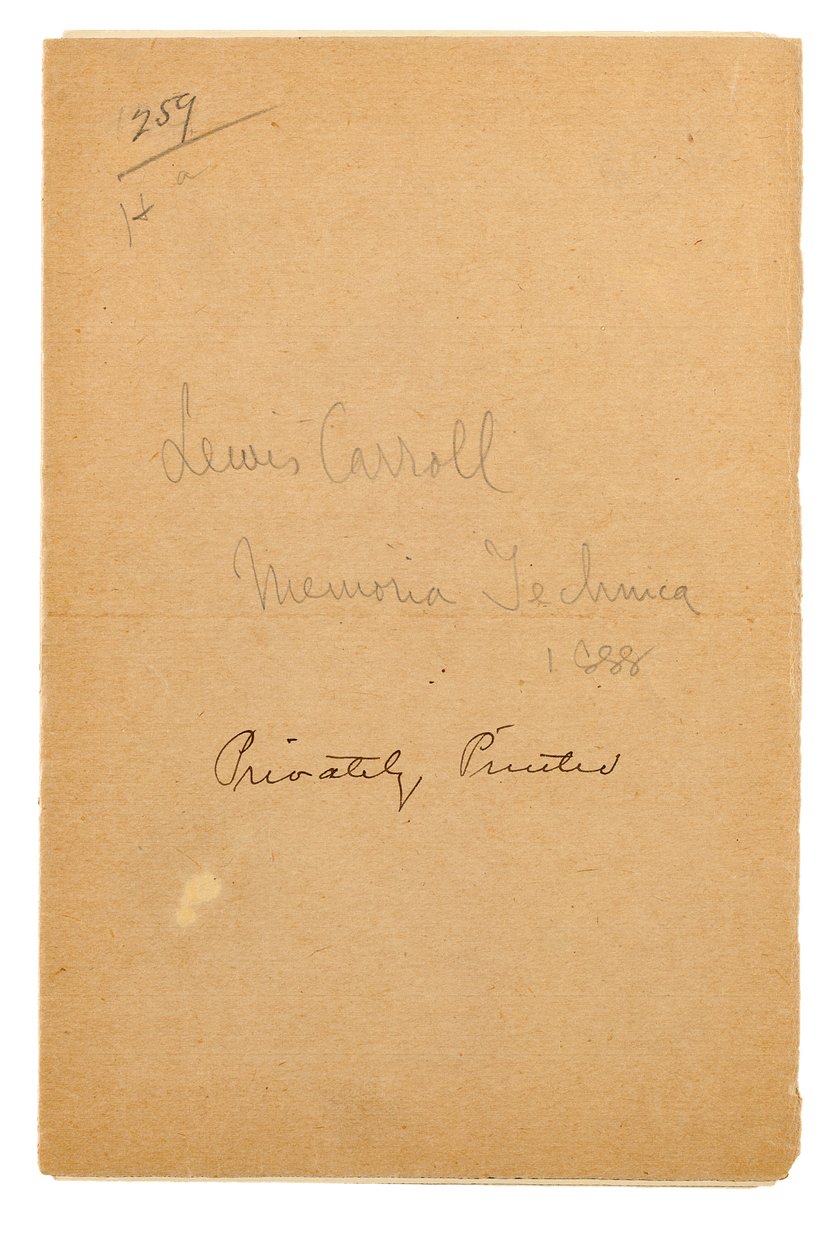 259
Lewis Carroll
Memoria Technica
1888
Privately Printed